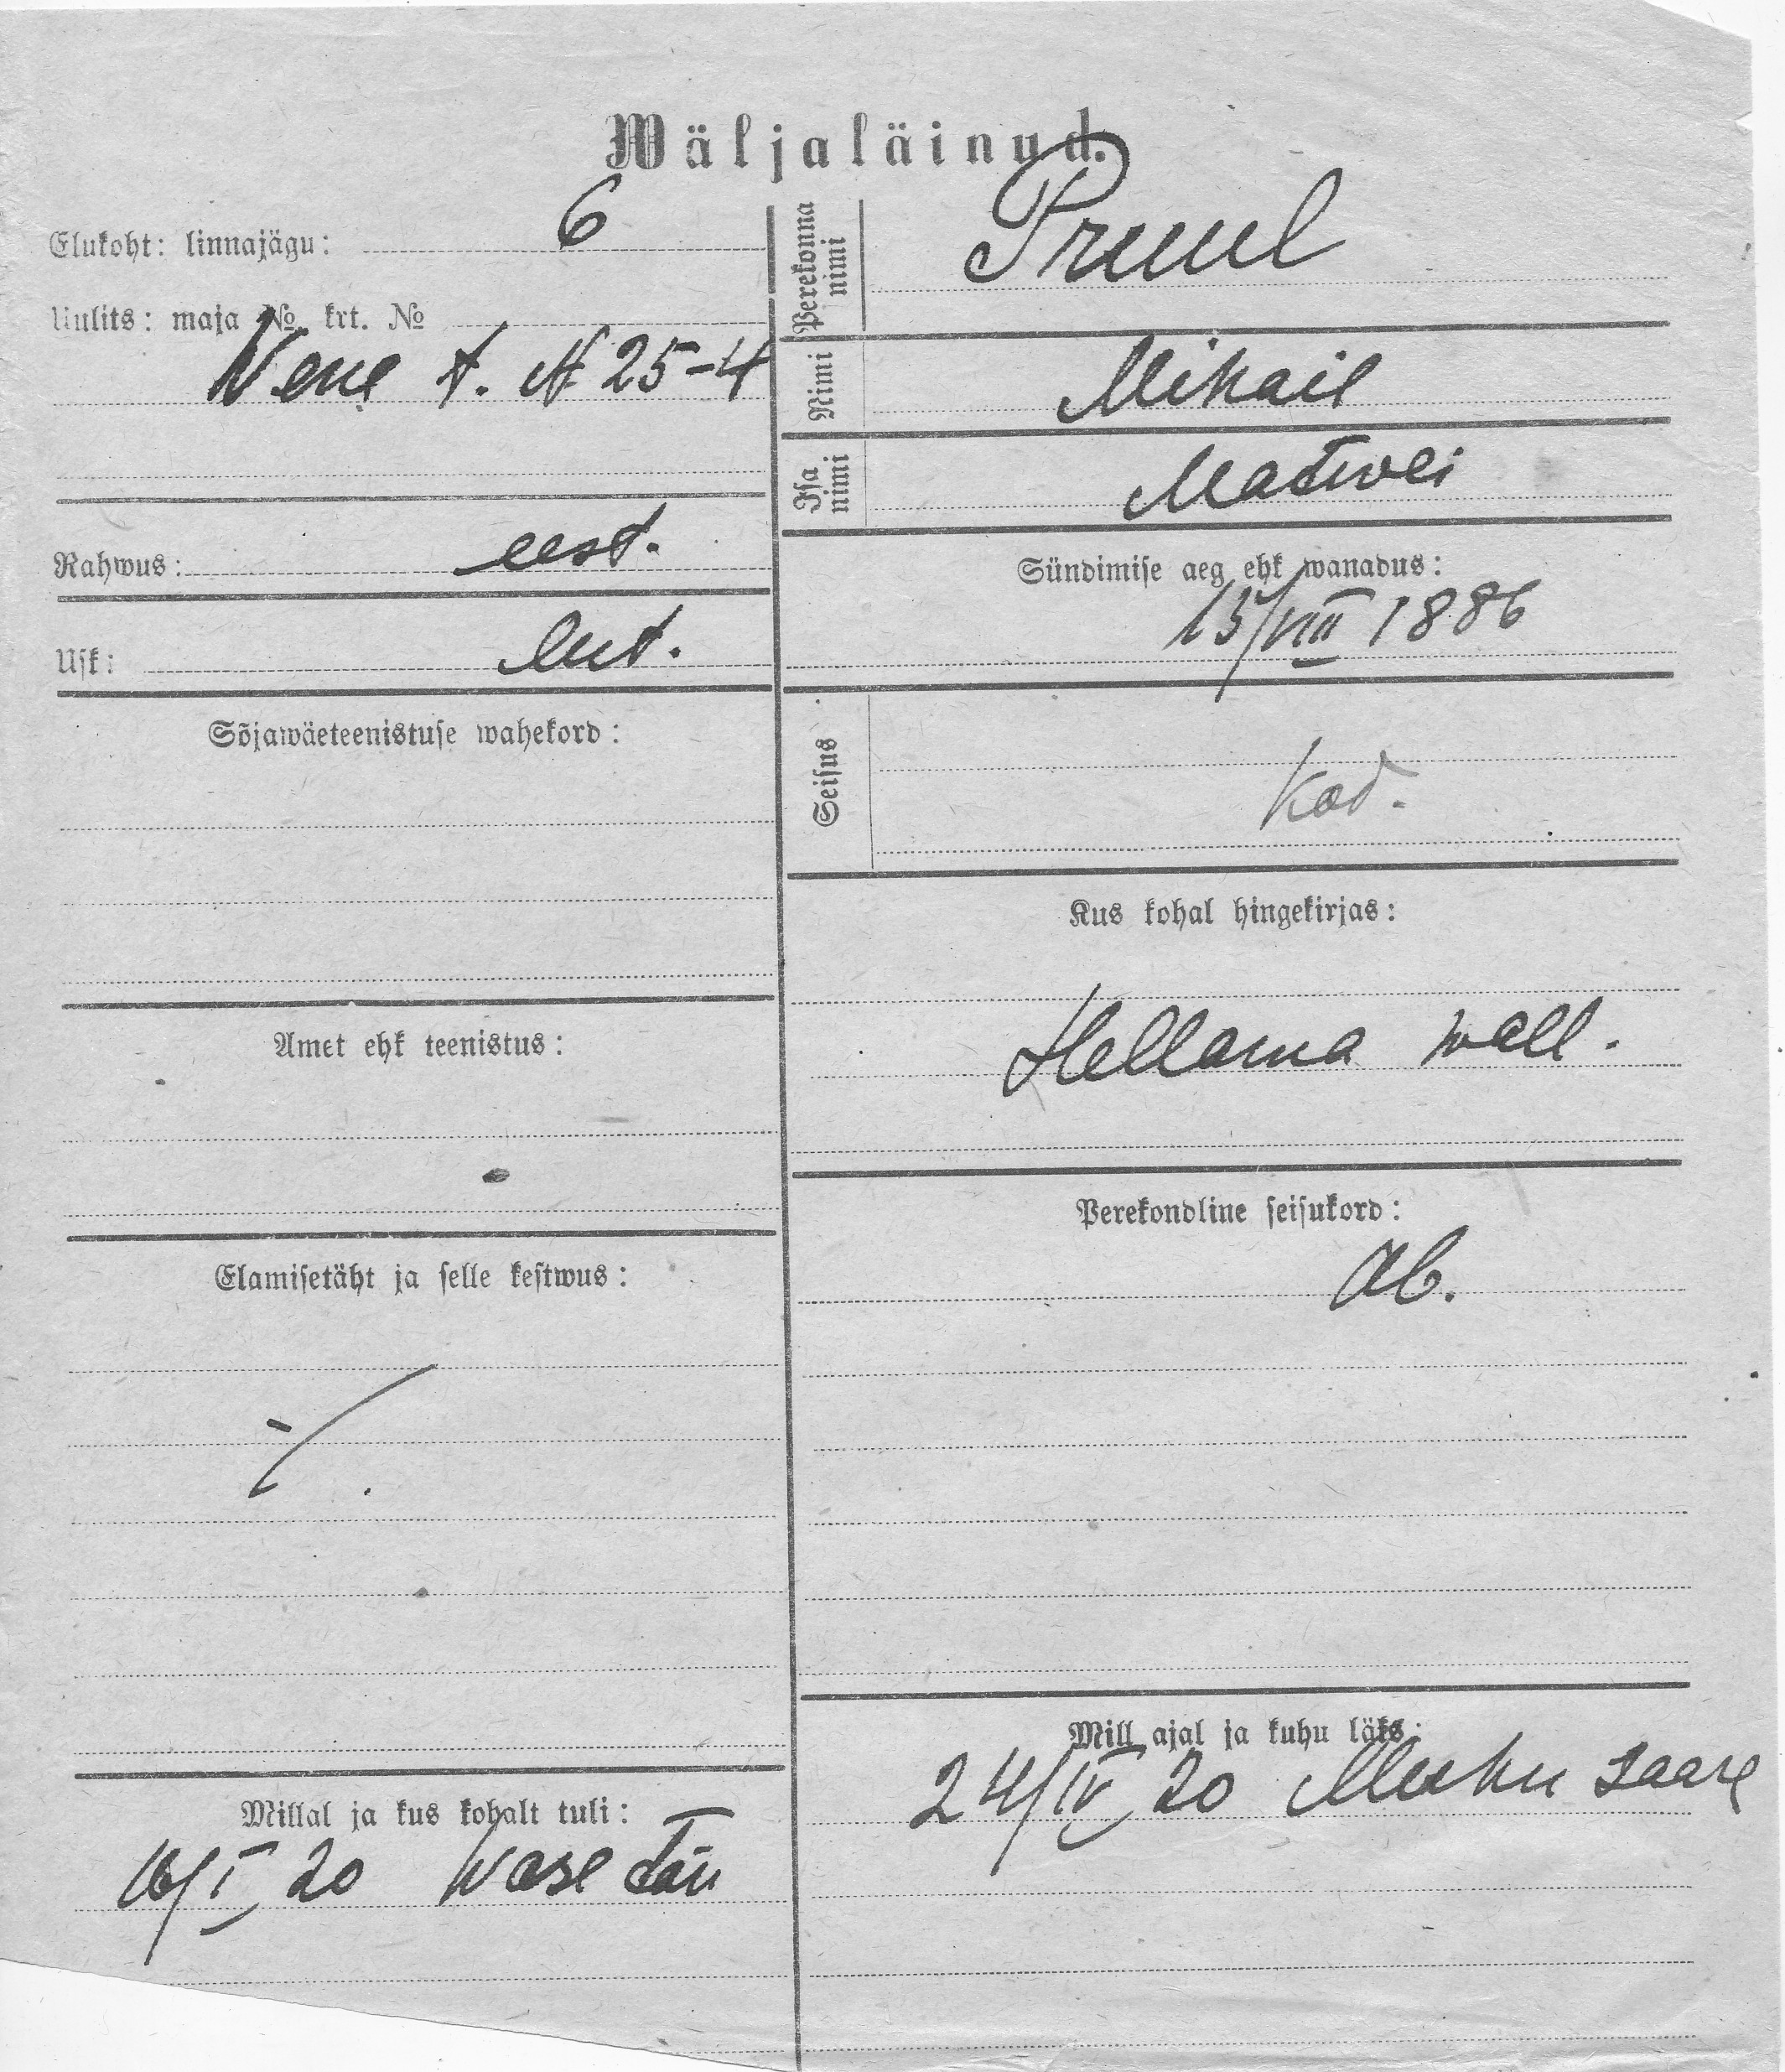 Wäljaläinud.
Elukoht: linnajägu: 6
Uulits: maja № krt. №
Vene t. № 25-4
Rahwus: eest.
Usk: lut.
Sõjawäeteenistuse wahekord:
Amet ehk teenistus:
Elamisetäht ja selle kestwus:
Millal ja kus kohalt tuli:
16/I 20 Wase tän
Perekonna nimi Pruul
Nimi Mihail
Isa nimi Matwei
Sündimise aeg ehk wanadus:
15/VIII 1886
Seisus Kod.
Kus kohal hingekirjas:
Hellama wall.
Perekondline seisukord:
Ab.
Mill ajal ja kuhu läks:
24/IV 20 Muhu saare